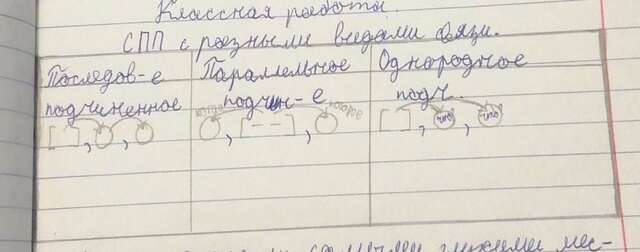 Классная работа.
СПП с разными видами связи.
Последов-е
подчиненное
Параллельное
подчин-е
Однородное
подч.
[ ], ( ), ( )
когда
которое
( ), [ - - ], ( )
[ ], (что), (что)